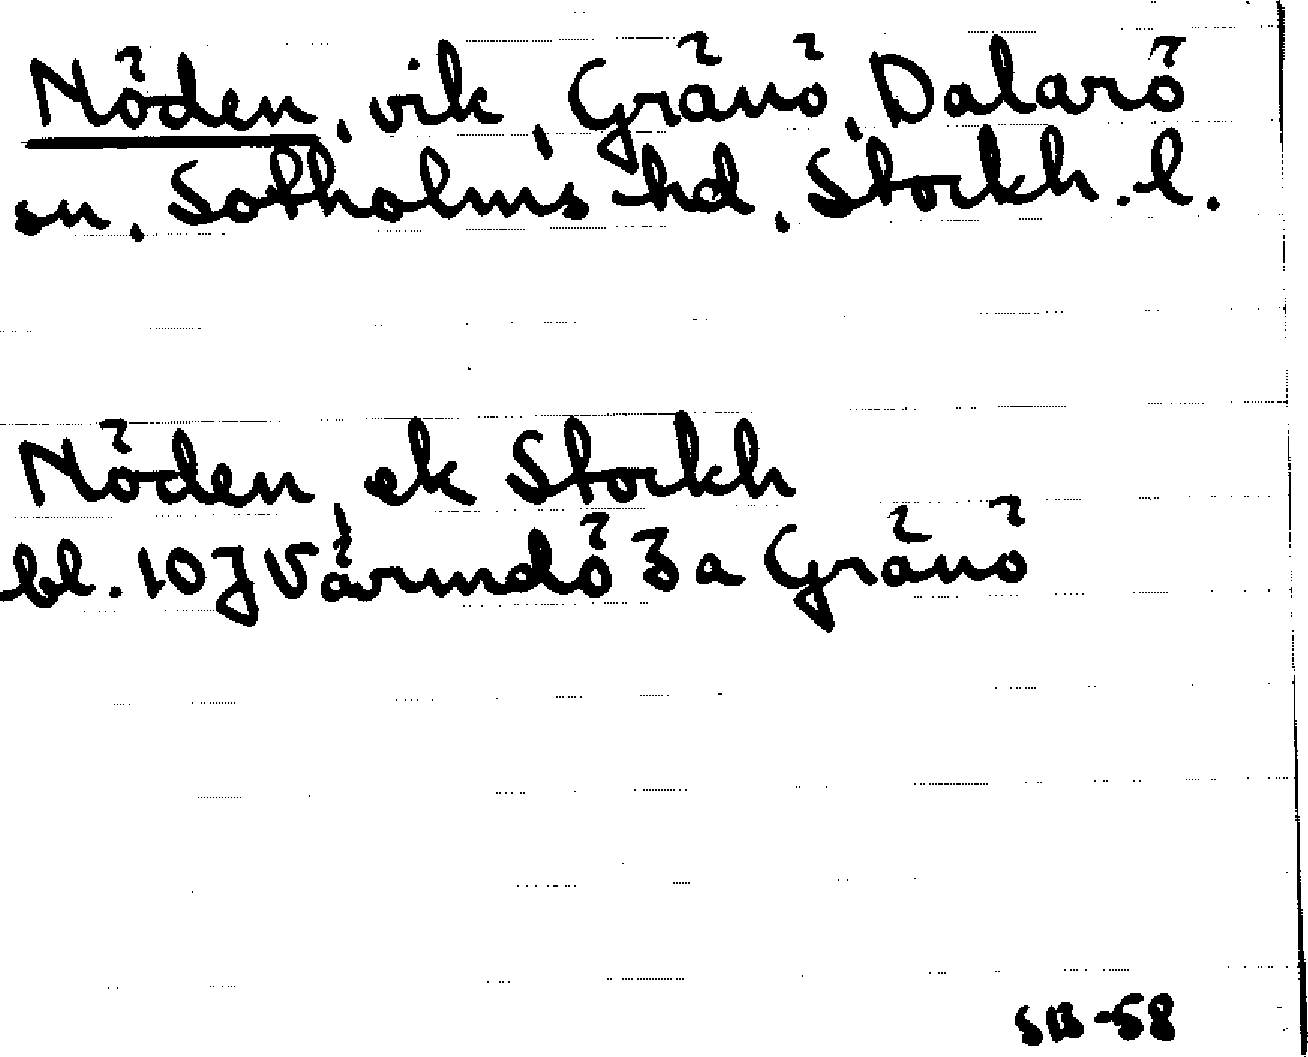 Nöden, vik, Gränö, Dalarö
sn, Sotholms hd, Stockh. l.
Nöden, ek Stockh
bl. 10J Värmdö 3a Gränö
SB-58